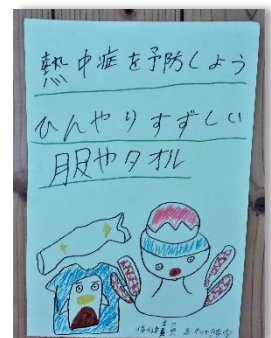 熱中症を予防しよう
ひんやりすずしい
服やタオル